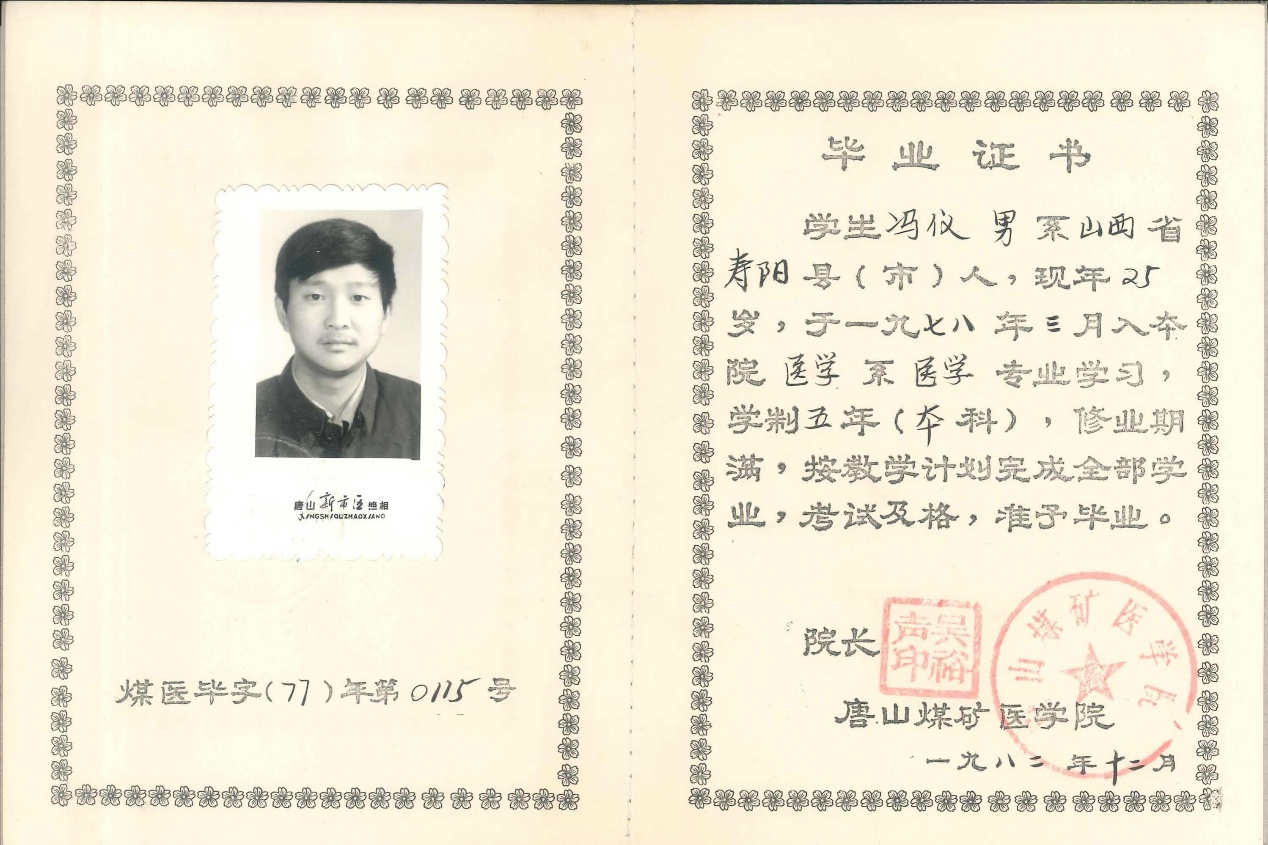 唐山新市区照相
XINGSHIQUZHAOXIANG
煤医毕字(77)年第0115号
毕业证书
学生冯仪 男 系山西省
寿阳县(市)人,现年25
岁,于一九七八年三月入本
院医学系医学专业学习,
学制五年(本科),修业期
满,按教学计划完成全部学
业,考试及格,准予毕业。
院长
吴裕声印
山煤矿医学院
唐山煤矿医学院
一九八二年十二月